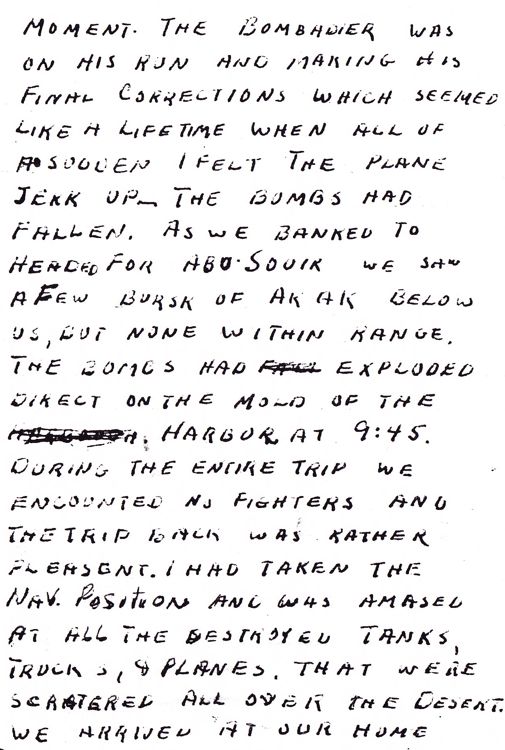 MOMENT. THE BOMBADIER WAS
ON HIS RUN AND MAKING HIS
FINAL CORRECTIONS WHICH SEEMED
LIKE A LIFETIME WHEN ALL OF
A SUDDEN I FELT THE PLANE
JERK UP_ THE BOMBS HAD
FALLEN. AS WE BANKED TO
HEADED FOR ABU-SOUIK WE SAW
A FEW BURSK OF AK AK BELOW
US, BUT NONE WITHIN RANGE.
THE BOMBS HAD EXPLODED
DIRECT ON THE MOLD OF THE
HARBOR AT 9:45.
DURING THE ENTIRE TRIP WE
ENCOUNTED NO FIGHTERS AND
THE TRIP BACK WAS RATHER
PLEASENT. I HAD TAKEN THE
NAV. POSITION AND WAS AMASED
AT ALL THE DESTROYED TANKS,
TRUCKS, & PLANES, THAT WERE
SCATTERED ALL OVER THE DESERT.
WE ARRIVED AT OUR HOME